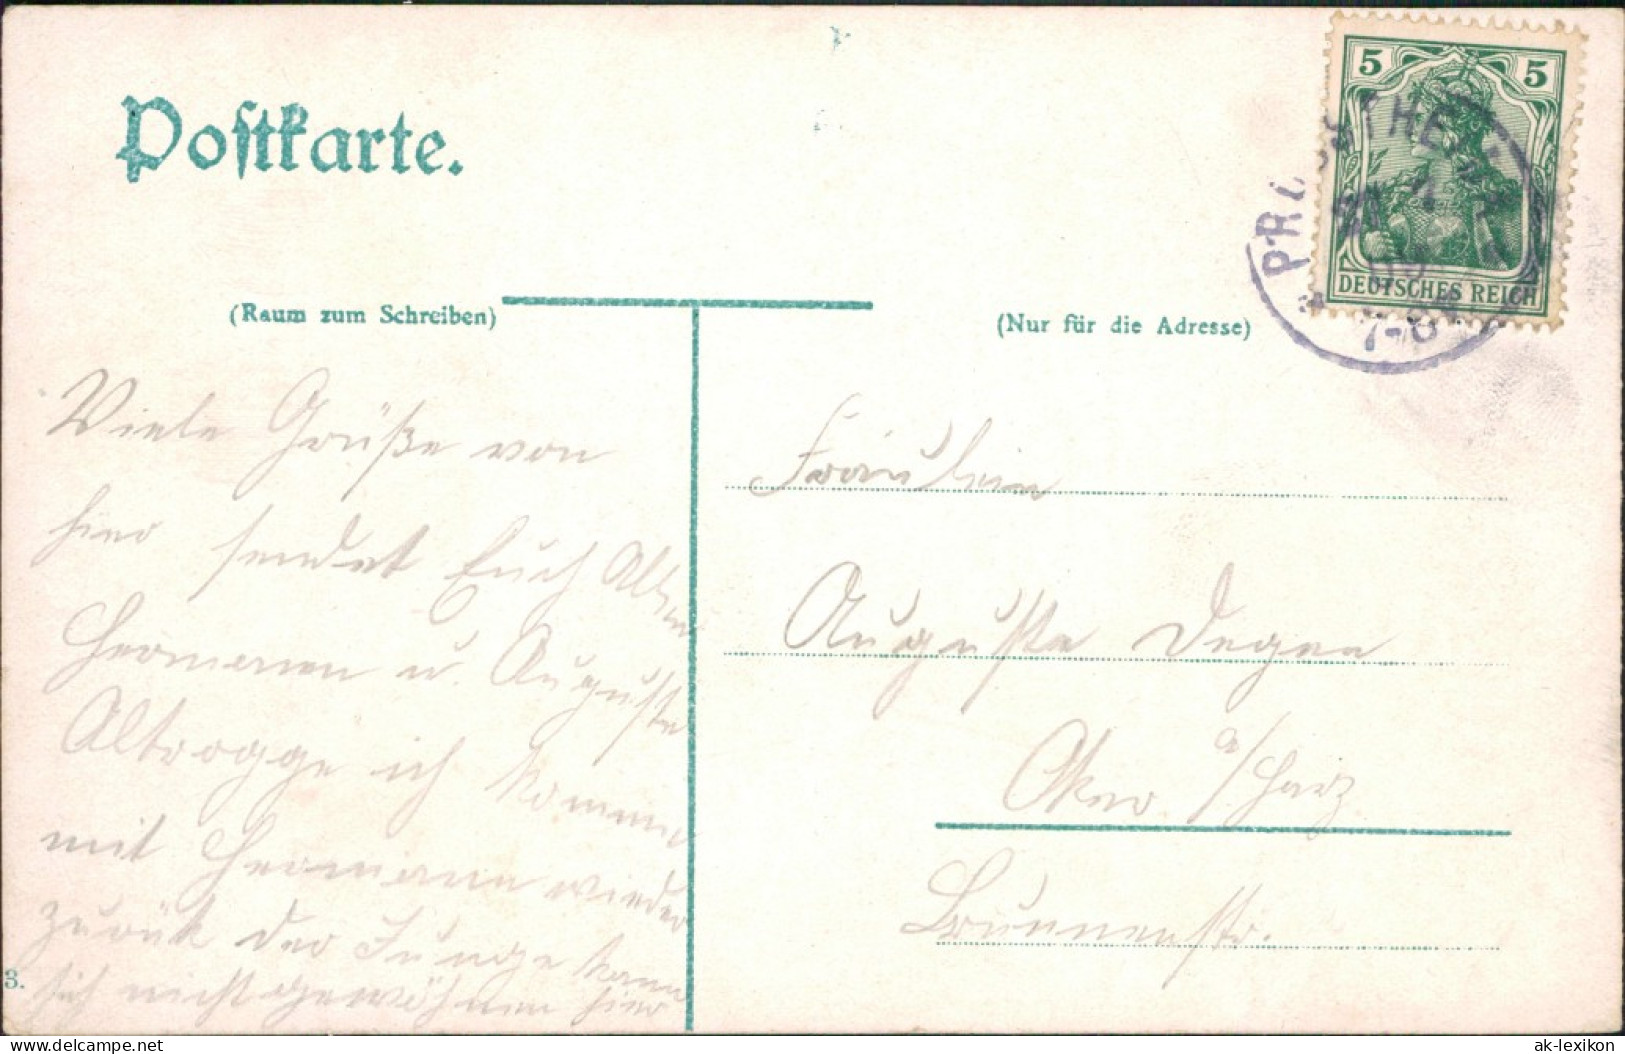 Postkarte.
5 5
DEUTSCHES REICH
7-8
(Raum zum Schreiben)
(Nur für die Adresse)
Viele Grüße von
hier sendet Euch
Hermann u. Auguste
Altrogge ich komme
mit Hermann wieder
zurük der Junge kann
sich nicht gewöhnen hier
Fräulein
Auguste Degen
Oker a/Harz
Brunnenstr.
3.
delcampe.net
ak-lexikon